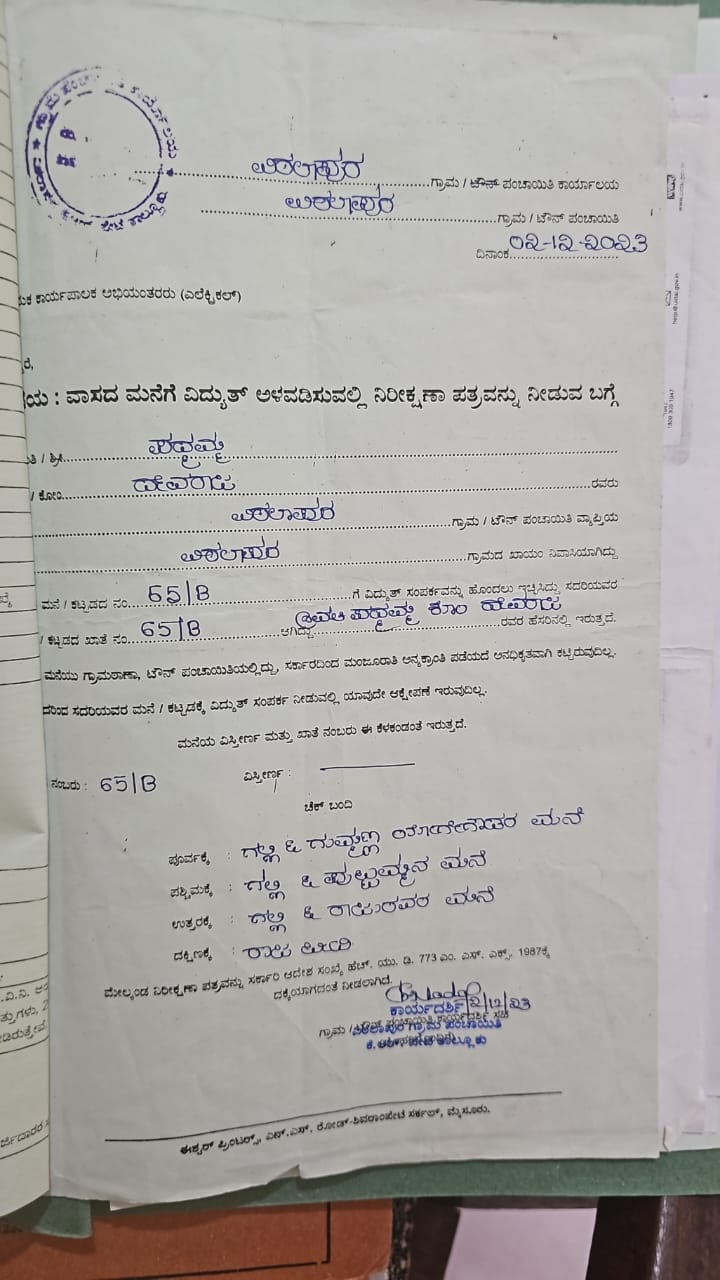 ವಿಠಲಾಪುರ ಗ್ರಾಮ / ಟೌನ್ ಪಂಚಾಯಿತಿ ಕಾರ್ಯಾಲಯ
ವಿಠಲಾಪುರ ಗ್ರಾಮ / ಟೌನ್ ಪಂಚಾಯಿತಿ
ದಿನಾಂಕ 02-12-2023
ಕಾರ್ಯಪಾಲಕ ಅಭಿಯಂತರರು (ಎಲೆಕ್ಟ್ರಿಕಲ್)
ರೆ,
ಯ : ವಾಸದ ಮನೆಗೆ ವಿದ್ಯುತ್ ಅಳವಡಿಸುವಲ್ಲಿ ನಿರೀಕ್ಷಣಾ ಪತ್ರವನ್ನು ನೀಡುವ ಬಗ್ಗೆ
ತಿ / ಶ್ರೀ ಪದ್ಮಮ್ಮ
/ ಕೋಂ ದೇವರಾಜ ರವರು
ವಿಠಲಾಪುರ ಗ್ರಾಮ / ಟೌನ್ ಪಂಚಾಯಿತಿ ವ್ಯಾಪ್ತಿಯ
ವಿಠಲಾಪುರ ಗ್ರಾಮದ ಖಾಯಂ ನಿವಾಸಿಯಾಗಿದ್ದು
ಮನೆ / ಕಟ್ಟಡದ ನಂ. 65/B ಗೆ ವಿದ್ಯುತ್ ಸಂಪರ್ಕವನ್ನು ಹೊಂದಲು ಇಚ್ಛಿಸಿದ್ದು ಸದರಿಯವರ
/ ಕಟ್ಟಡದ ಖಾತೆ ನಂ. 65/B ಆಗಿದ್ದು ಶ್ರೀಮತಿ ಪದ್ಮಮ್ಮ ಕೋಂ ದೇವರಾಜ ರವರ ಹೆಸರಿನಲ್ಲಿ ಇರುತ್ತದೆ.
ಮನೆಯು ಗ್ರಾಮಠಾಣಾ, ಟೌನ್ ಪಂಚಾಯಿತಿಯಲ್ಲಿದ್ದು, ಸರ್ಕಾರದಿಂದ ಮಂಜೂರಾತಿ ಅನ್ಯಕ್ರಾಂತಿ ಪಡೆಯದೆ ಅನಧಿಕೃತವಾಗಿ ಕಟ್ಟಿರುವುದಿಲ್ಲ.
ದರಿಂದ ಸದರಿಯವರ ಮನೆ / ಕಟ್ಟಡಕ್ಕೆ ವಿದ್ಯುತ್ ಸಂಪರ್ಕ ನೀಡುವಲ್ಲಿ ಯಾವುದೇ ಆಕ್ಷೇಪಣೆ ಇರುವುದಿಲ್ಲ.
ಮನೆಯ ವಿಸ್ತೀರ್ಣ ಮತ್ತು ಖಾತೆ ನಂಬರು ಈ ಕೆಳಕಂಡಂತೆ ಇರುತ್ತದೆ.
ನಂಬರು : 65/B ವಿಸ್ತೀರ್ಣ :
ಚೆಕ್ ಬಂದಿ
ಪೂರ್ವಕ್ಕೆ : ಗಲ್ಲಿ & ಗುಮ್ಮಣ್ಣ ಮನೆ
ಪಶ್ಚಿಮಕ್ಕೆ : ಗಲ್ಲಿ & ಪುಟ್ಟಮ್ಮನ ಮನೆ
ಉತ್ತರಕ್ಕೆ : ಗಲ್ಲಿ & ಮನೆ
ದಕ್ಷಿಣಕ್ಕೆ : ರಾಜ ಬೀದಿ
ಮೇಲ್ಕಂಡ ನಿರೀಕ್ಷಣಾ ಪತ್ರವನ್ನು ಸರ್ಕಾರಿ ಆದೇಶ ಸಂಖ್ಯೆ ಹೆಚ್. ಯು. ಡಿ. 773 ಎಂ. ಎಸ್. ಎಕ್ಸ್. 1987ಕ್ಕೆ
ದಕ್ಕೆಯಾಗದಂತೆ ನೀಡಲಾಗಿದೆ.
2/12/23
ಕಾರ್ಯದರ್ಶಿ
ವಿಠಲಾಪುರ ಗ್ರಾಮ ಪಂಚಾಯಿತಿ
ಕೆ.ಆರ್.ಪೇಟೆ ತಾಲ್ಲೂಕು
ಈಶ್ವರ್ ಪ್ರಿಂಟರ್ಸ್, ಎನ್.ಎಸ್. ರೋಡ್-ಶಿವರಾಂಪೇಟೆ ಸರ್ಕಲ್, ಮೈಸೂರು.